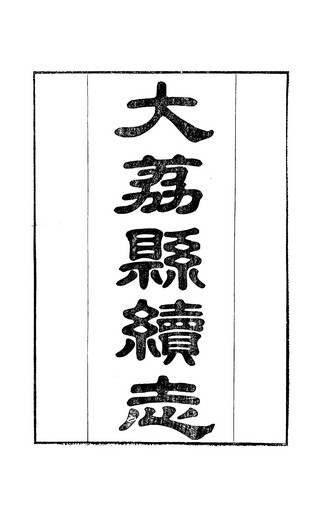 大荔縣續志